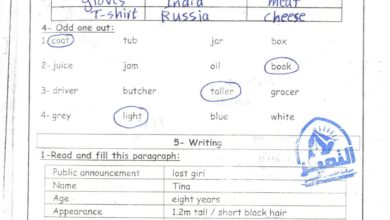 gloves India meat
T-shirt Russia cheese
4- Odd one out:
1- coat tub jar box
2- juice jam oil book
3- driver butcher taller grocer
4- grey light blue white
5- Writing
1-Read and fill this paragraph:
Public announcement lost girl
Name Tina
Age eight years
Appearance 1.2m tall / short black hair